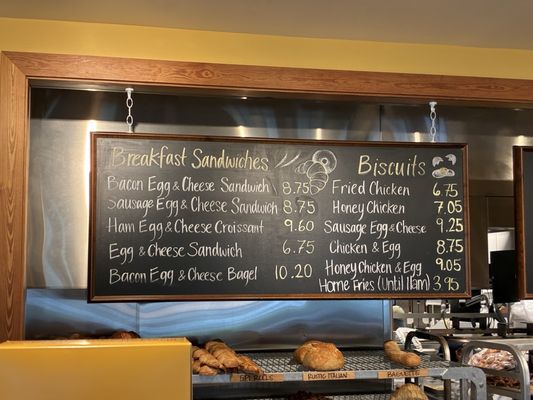 Breakfast Sandwiches
Bacon Egg & Cheese Sandwich 8.75
Sausage Egg & Cheese Sandwich 8.75
Ham Egg & Cheese Croissant 9.60
Egg & Cheese Sandwich 6.75
Bacon Egg & Cheese Bagel 10.20
Biscuits
Fried Chicken 6.75
Honey Chicken 7.05
Sausage Egg & Cheese 9.25
Chicken & Egg 8.75
Honey Chicken & Egg 9.05
Home Fries (Until 11am) 3.95
RUSTIC ITALIAN
BAGUETTE